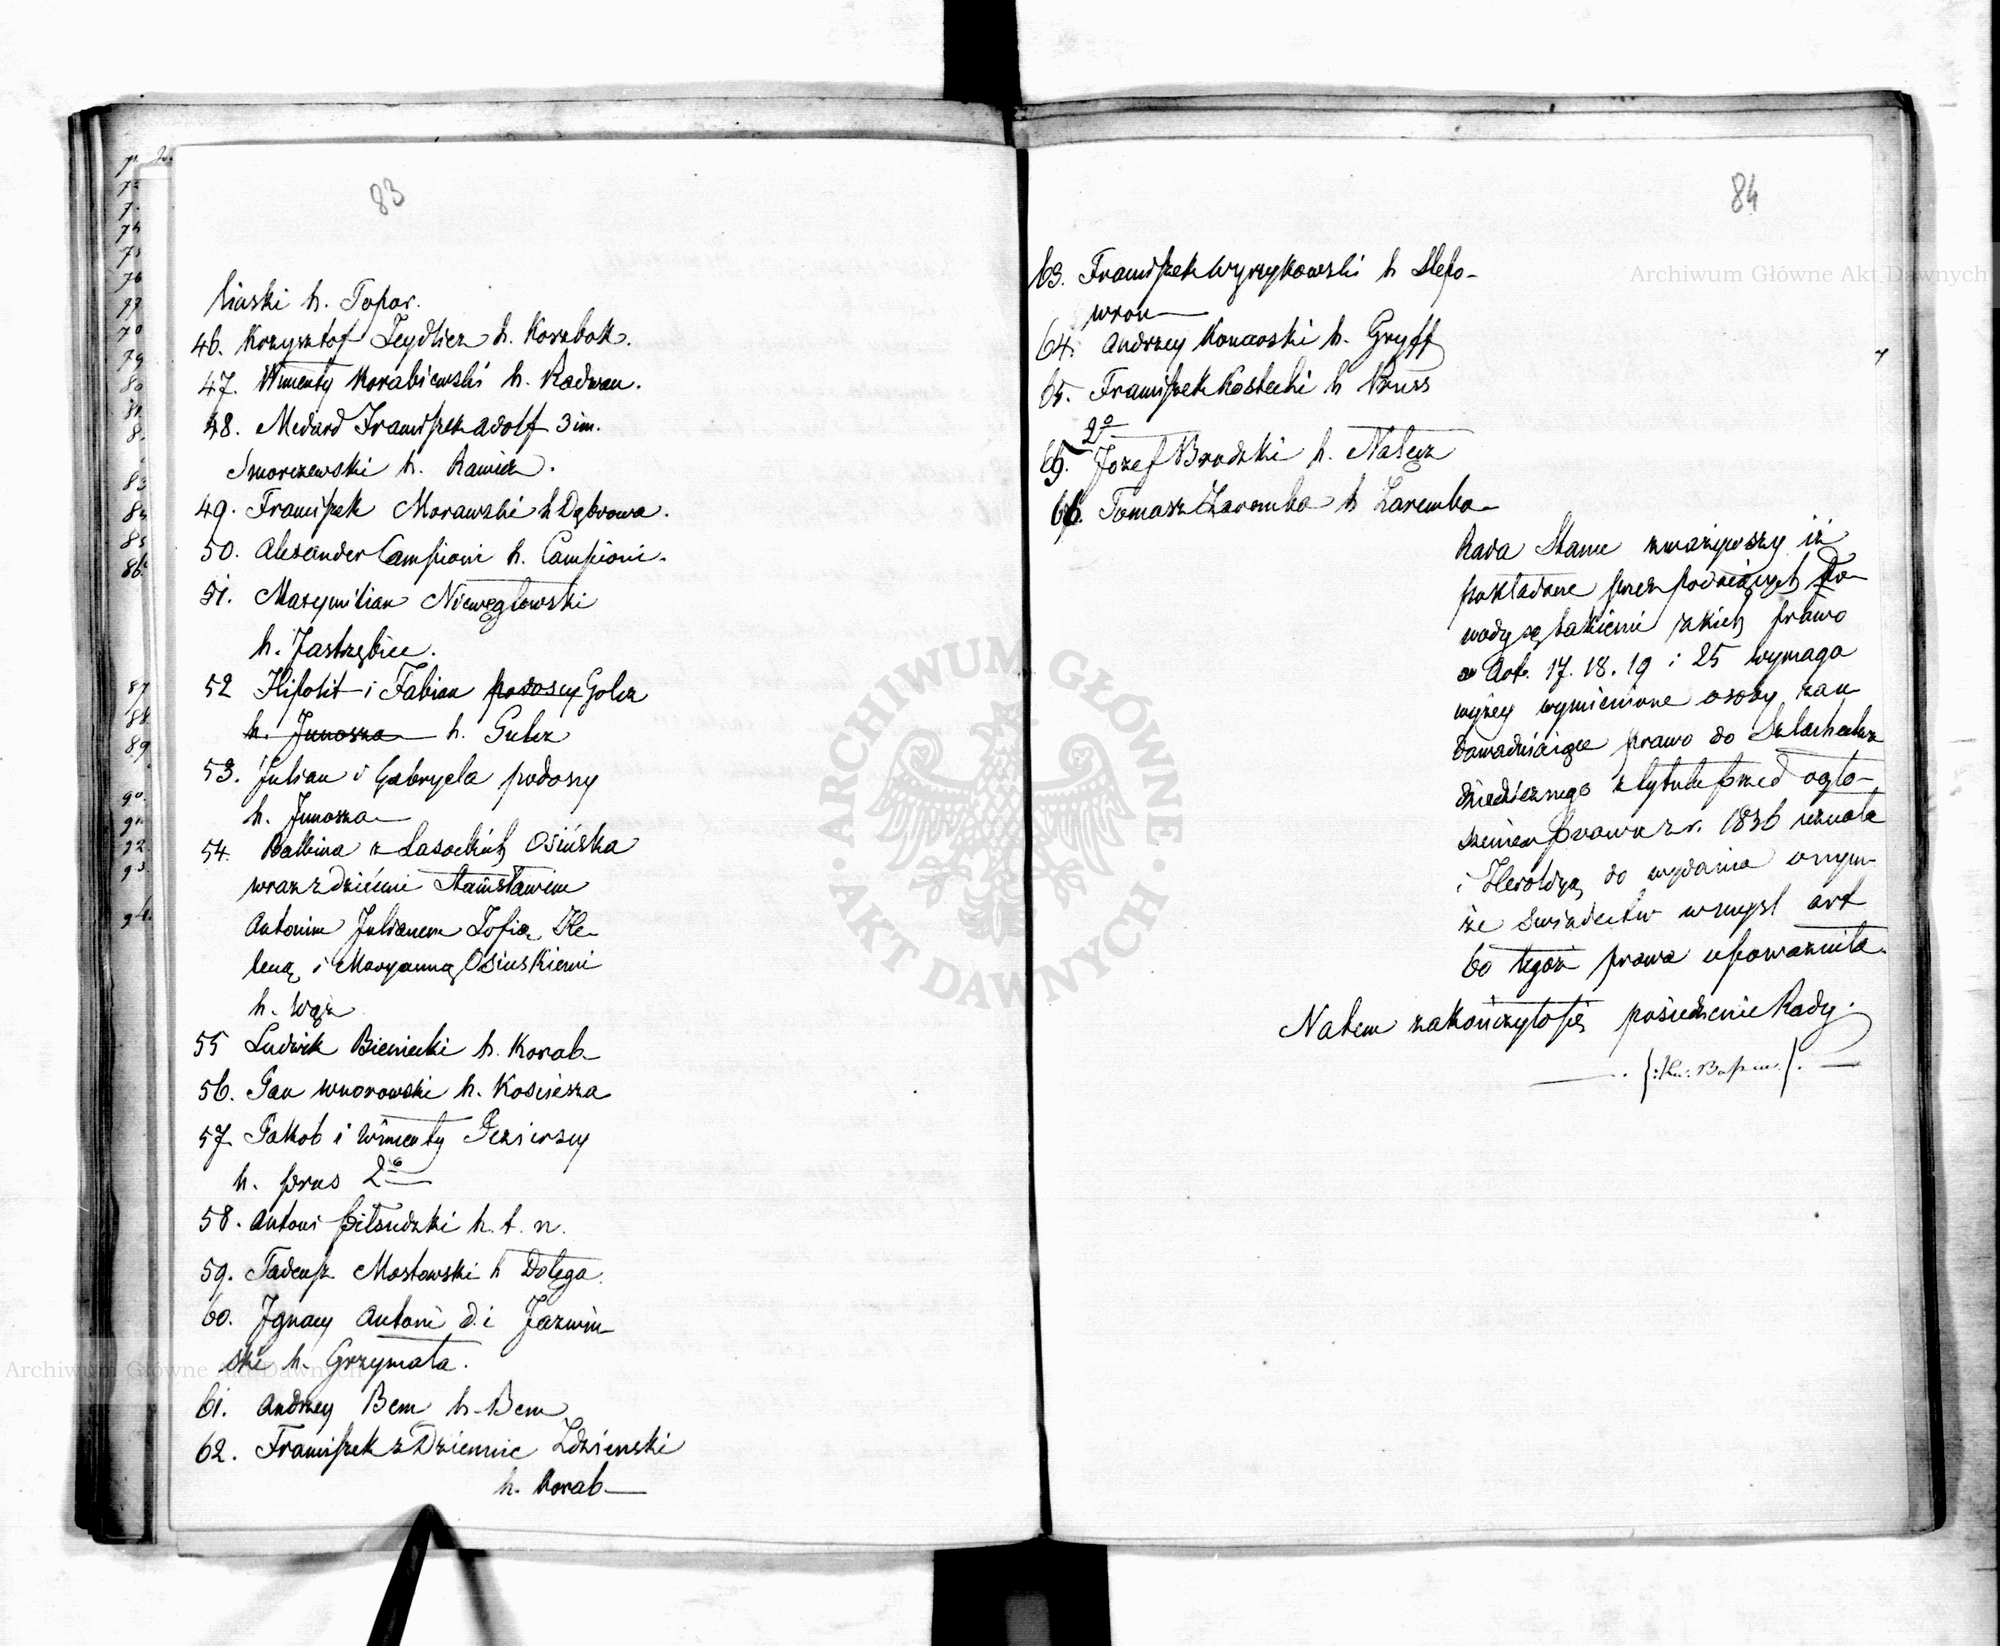 83
liński h. Topor.
46. Krzysztof Zeydlicz h. Korzbok.
47. Wincenty Korabiewski h. Radwan.
48. Medard Franciszek Adolf 3 im.
Smorczewski h. Rawicz.
49. Franciszek Morawski h Dąbrowa.
50. Alexander Campioni h. Campioni.
51. Maxymilian Niewęgłowski
h. Jastrzębiec.
52 Hipolit i Fabian Podoscy Golcz
h. Junosza h. Gulcz
53. Julian i Gabryela Podoscy
h. Junosza
54. Balbina z Lasockich Osińska
wraz z dziećmi Stanisławem
Antonim Julianem Zofią, He-
leną i Maryanną Osińskiemi
h. Wąż
55 Ludwik Bieniecki h. Korab
56. Jan Wnorowski h. Kościesza
57 Jakób i Wincenty Jezierscy
h. Prus 2o
58. Antoni Piłsudzki h. t. n.
59. Tadeusz Mostowski h Dołęga.
60. Ignacy Antoni d. i Jazwiń
ski h. Grzymała.
61. Andrzey Bem h. Bem
62. Franciszek z Dziemie Zdzienski
h. Korab
84
63. Franciszek Wyrzykowski h Slepo-
wron
64. Andrzey Konarski h. Gryff
65. Franciszek Kostecki h Pruss
2o
65. Jozef Brodzki h. Nałęcz
66. Tomasz Zaremba h Zaremba
Rada Stanu zważywszy iż
pokładane przez podnoszących do-
wody są takiemi jakich prawo
w Art. 17. 18. 19 i 25 wymaga
wyżey wymienione osoby za u
dowadniaiące prawo do Szlachectwa
dziedzicznego z tytułu przed ogło-
szeniem Prawa z r. 1836 uznała
i Heroldyą do wydania onym
że świadectw w myśl art
60 tegoż prawa upoważniła.
Natem zakończyło się posiedzenie Rady.